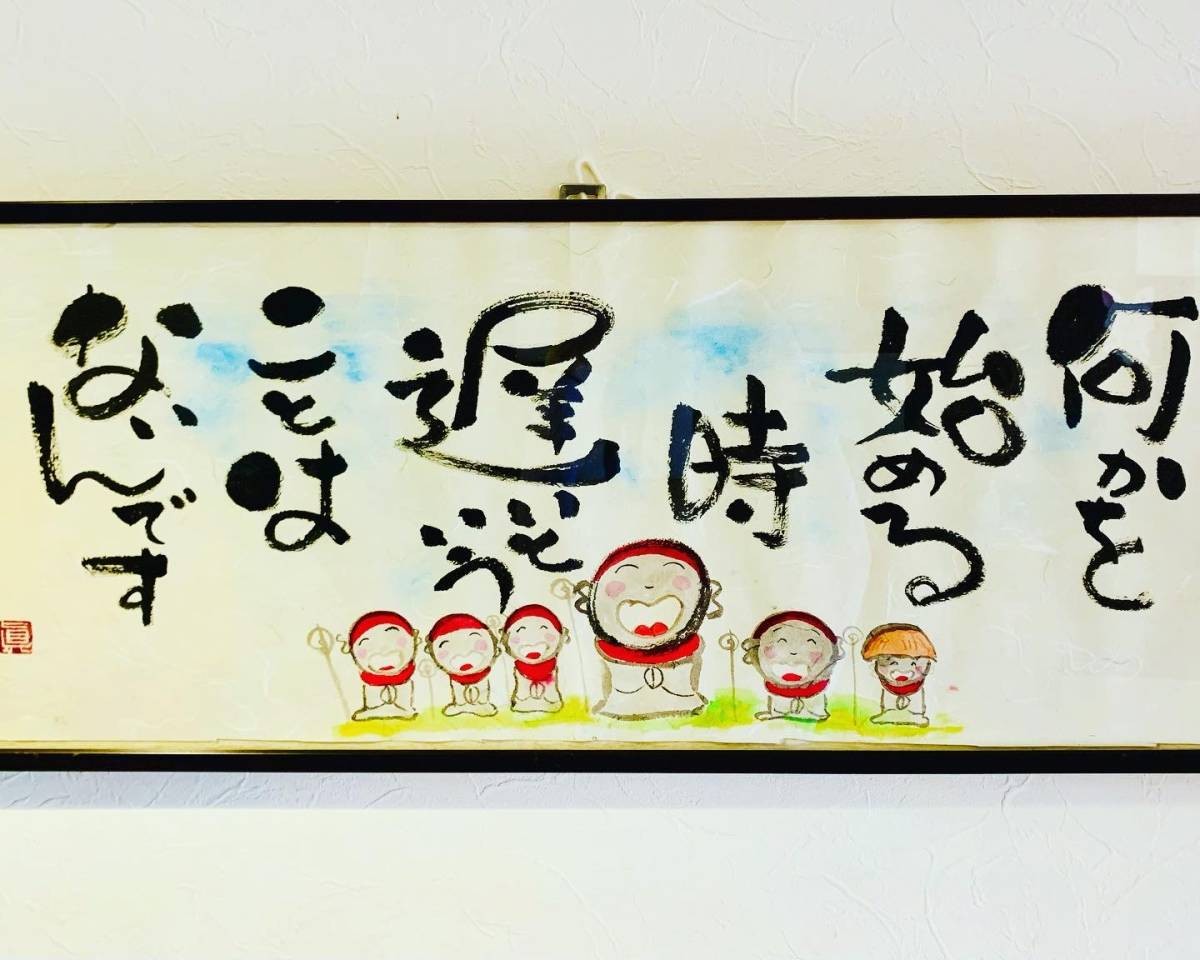 何かを
始める
時
遅いという
ことは
ないんです
眞